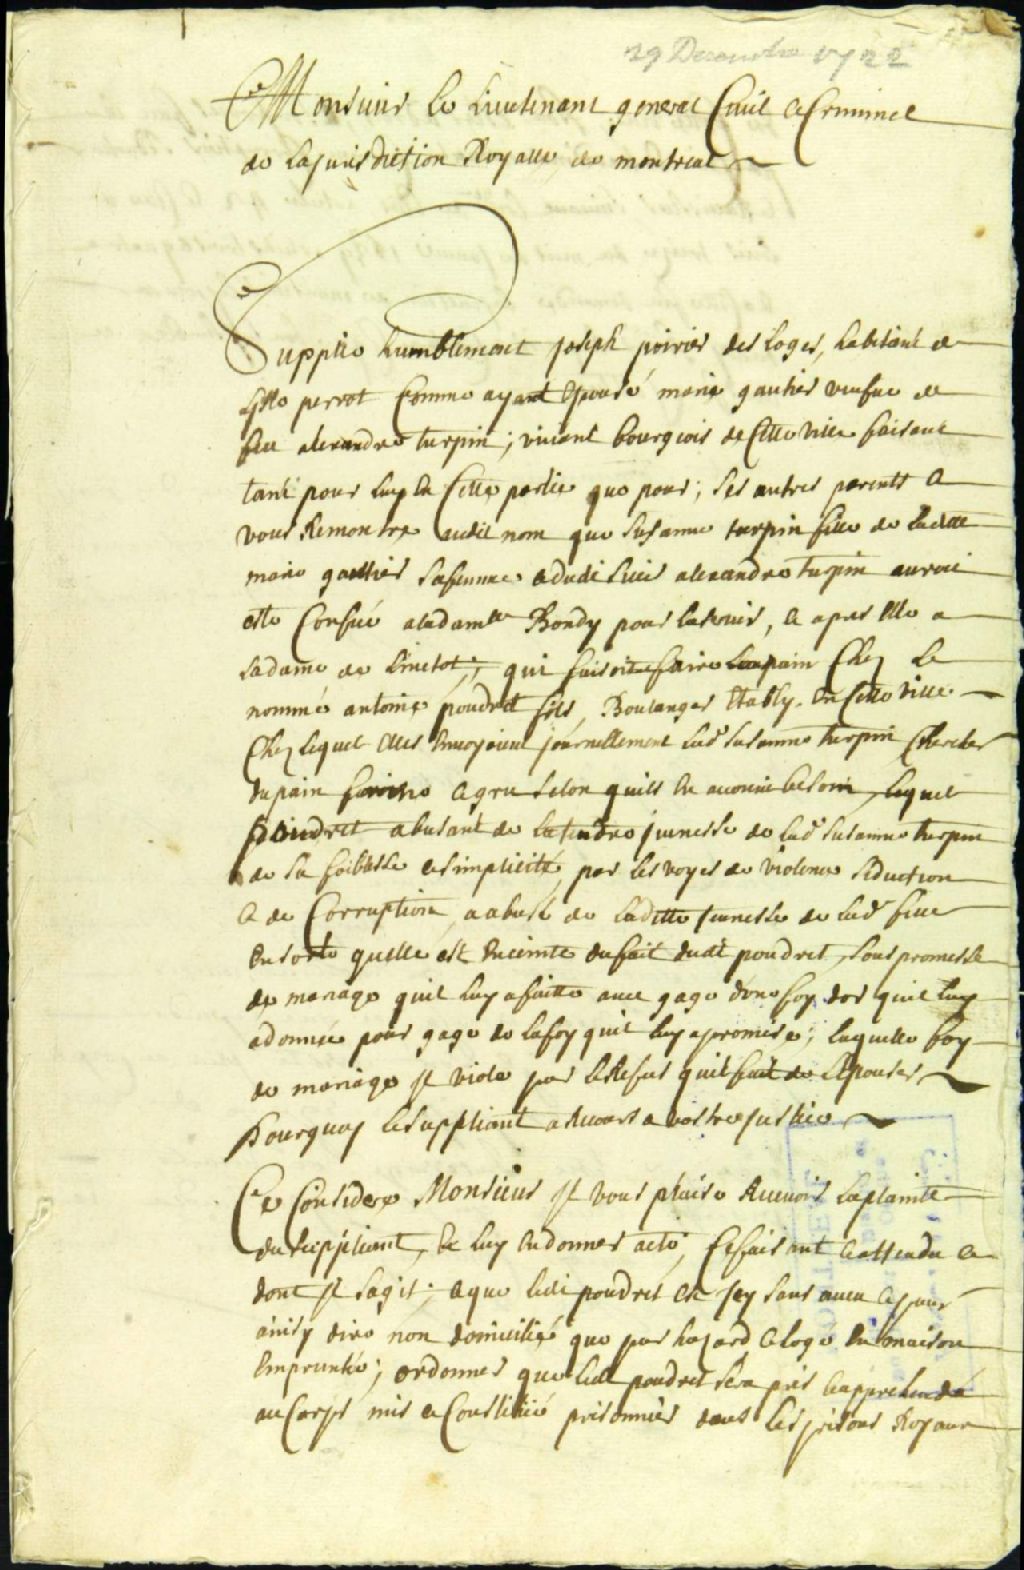 29 Decembre 1722
A Monsieur Le Lieutenant general Civil & Criminel
de La Jurisdiction Royalle de montreal
Supplie humblement joseph poirier des loges, habitant de
lisle perrot Comme ayant Epousé marie gautier veufue de
feu alexandre turpin; viuant bourgeois de Cette ville faisant
tant pour luy En Cette partie que pour; ses autres parents &
vous Remontre audit nom que Susanne turpin fille de ladite
marie gaultier sa femme & dudit sieur alexandre turpin auroit
esté Confiée a la dam.lle Bondy pour la seruir, & apres Elle a
la dame de linctot; qui faisoit faire Leur pain Chez Le
nommé antoine poudret fils, Boulanger Etably En Cette Ville
Chez lequel Elles Enuoyoient journellement lad.e susanne turpin Chercher
du pain farine & gru selon quils En auoient besoin, lequel
poudret abusant de la tendre jeunesse de lad.e susanne turpin
de sa foiblesse & simplicité par les voyes de violence seduction
& de Corruption, a abusé de laditte jeunesse de lad.e fille
En sorte quelle est Enceinte du fait dudit poudret, sous promesse
de mariage quil luy a faitte auec gage dune foy dor quil luy
a donnée pour gage de la foy quil luy a promise; laquelle foy
de mariage Il viole par le Refus quil fait de lEpouser
Pourquoy le suppliant a Recours a vostre justice
Ce Consideré Monsieur Il vous plaise Receuoir la plainte
du suppliant, Et luy En donner acte, Ce faisant & attendu Ce
dont Il sagit; & que ledit poudret Est Icy sans aueu & pour
ainsy dire non domicilié que par hazard & loge En maison
Empruntée; ordonner que ledit poudret sera pris & apprehendé
au Corps mis & Constitué prisonnier dans les prisons Royaux